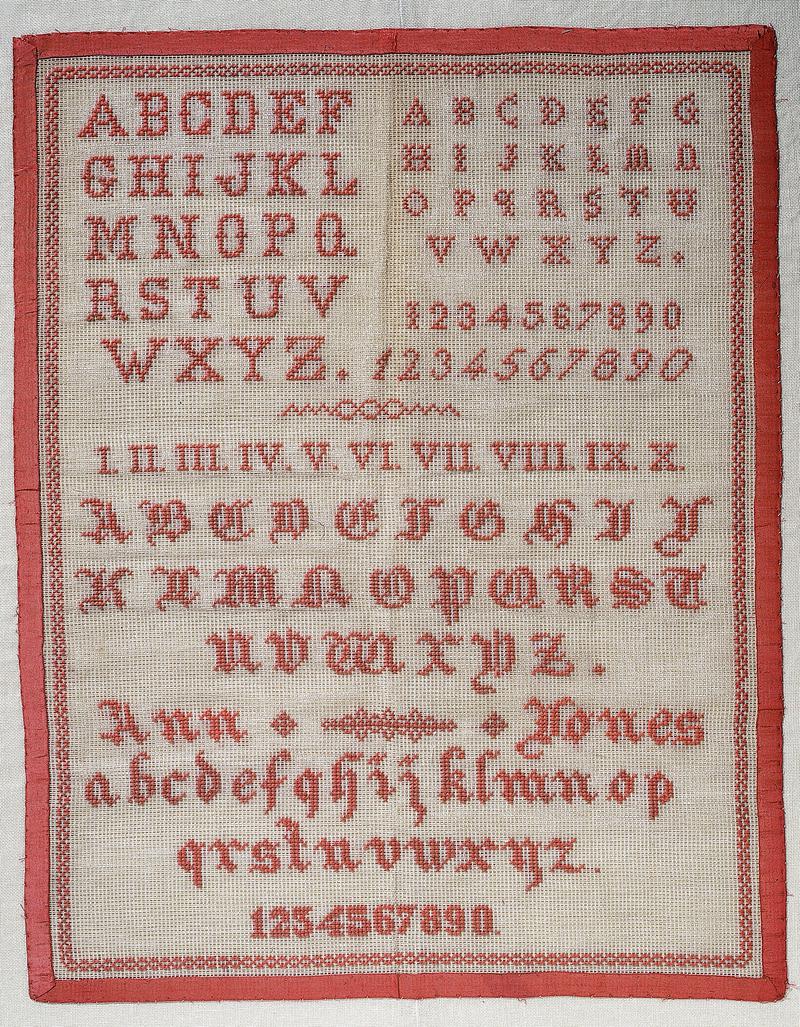 ABCDEF
GHIJKL
MNOPQ
RSTUV
WXYZ.
A B C D E F G
H I J K L M N
O P Q R S T U
V W X Y Z.
1234567890
1234567890
I. II. III. IV. V. VI. VII. VIII. IX. X.
A B C D E F G H I J
K L M N O P Q R S T
U V W X Y Z.
Ann Jones
abcdefghijklmnop
qrstuvwxyz.
1234567890.